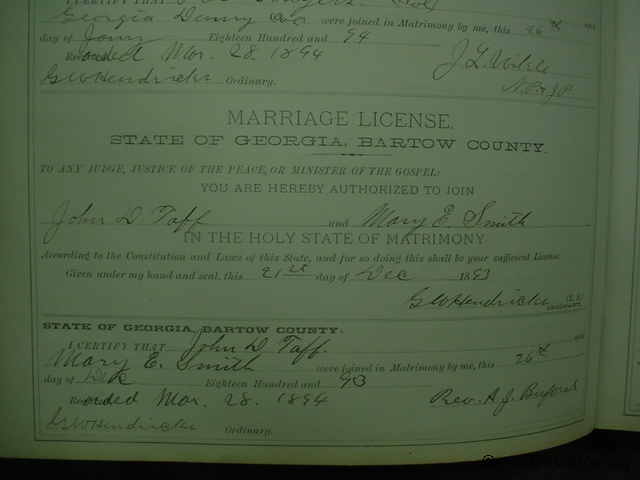 I CERTIFY THAT
Georgia Denny Col were joined in Matrimony by me, this 26th
day of Jany Eighteen Hundred and 94
Recorded Mar. 28. 1894
GWHendricks Ordinary. N.P.&J.P.
MARRIAGE LICENSE.
STATE OF GEORGIA, BARTOW COUNTY.
TO ANY JUDGE, JUSTICE OF THE PEACE, OR MINISTER OF THE GOSPEL:
YOU ARE HEREBY AUTHORIZED TO JOIN
John D. Taff. and Mary E. Smith
IN THE HOLY STATE OF MATRIMONY
According to the Constitution and Laws of this State, and for so doing this shall be your sufficient License.
Given under my hand and seal, this 21st day of Dec 1893
GWHendricks (L.S)
STATE OF GEORGIA, BARTOW COUNTY:
I CERTIFY THAT John D Taff. and
Mary E. Smith were joined in Matrimony by me, this 26th
day of Dec Eighteen Hundred and 93
Recorded Mar. 28. 1894 Rev. A. J. Buford
GWHendricks Ordinary.